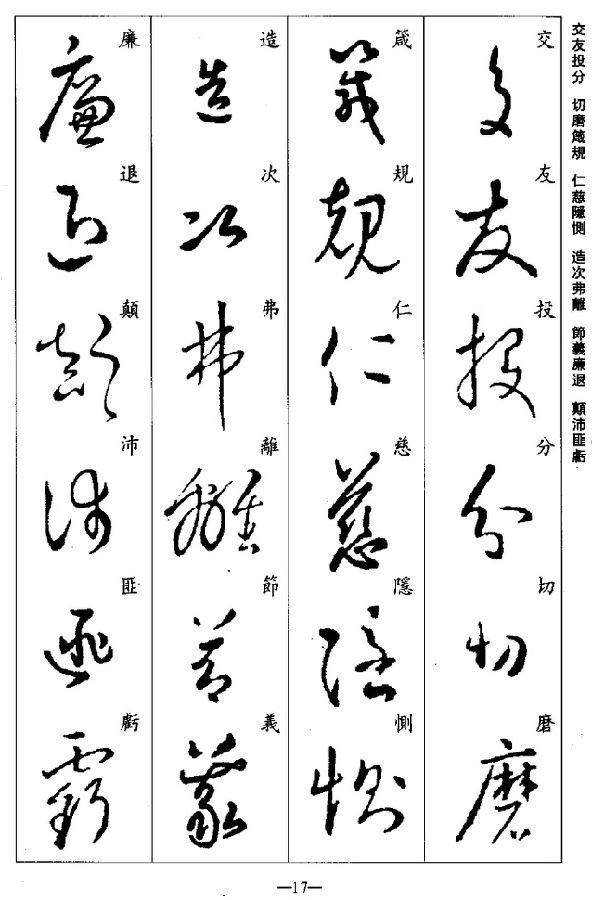 交友投分 切磨箴規 仁慈隱惻 造次弗離 節義廉退 顛沛匪虧
交友投分切磨
箴規仁慈隱惻
造次弗離節義
廉退顛沛匪虧
—17—